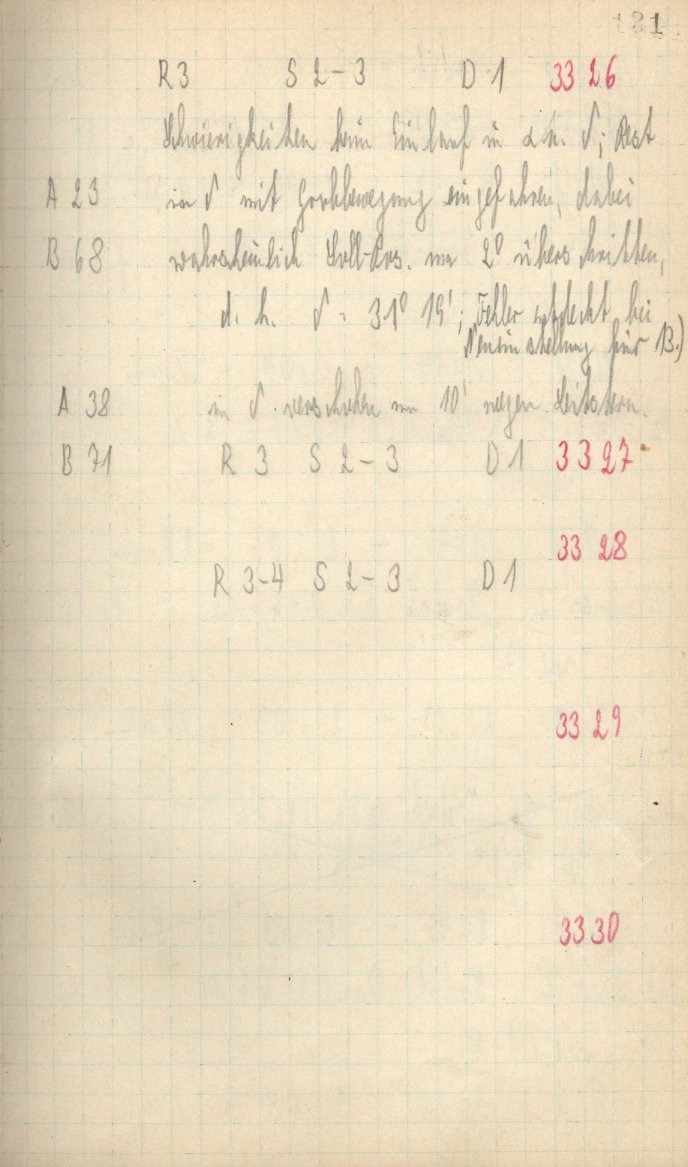 131
R 3 S 2-3 D 1 3326
Schwierigkeiten beim Einlauf in α u. δ; Rest
A 23 in δ mit Grobbewegung eingefahren, dabei
B 68 wahrscheinlich Soll-Pos. um 2° überschritten,
d. h. δ = 31° 19'; Fehler entdeckt bei
Neueinstellung für 13.)
A 38 in δ verschoben um 10' wegen Leitstern.
B 71 R 3 S 2-3 D 1 3327
3328
R 3-4 S 2-3 D 1
3329
3330